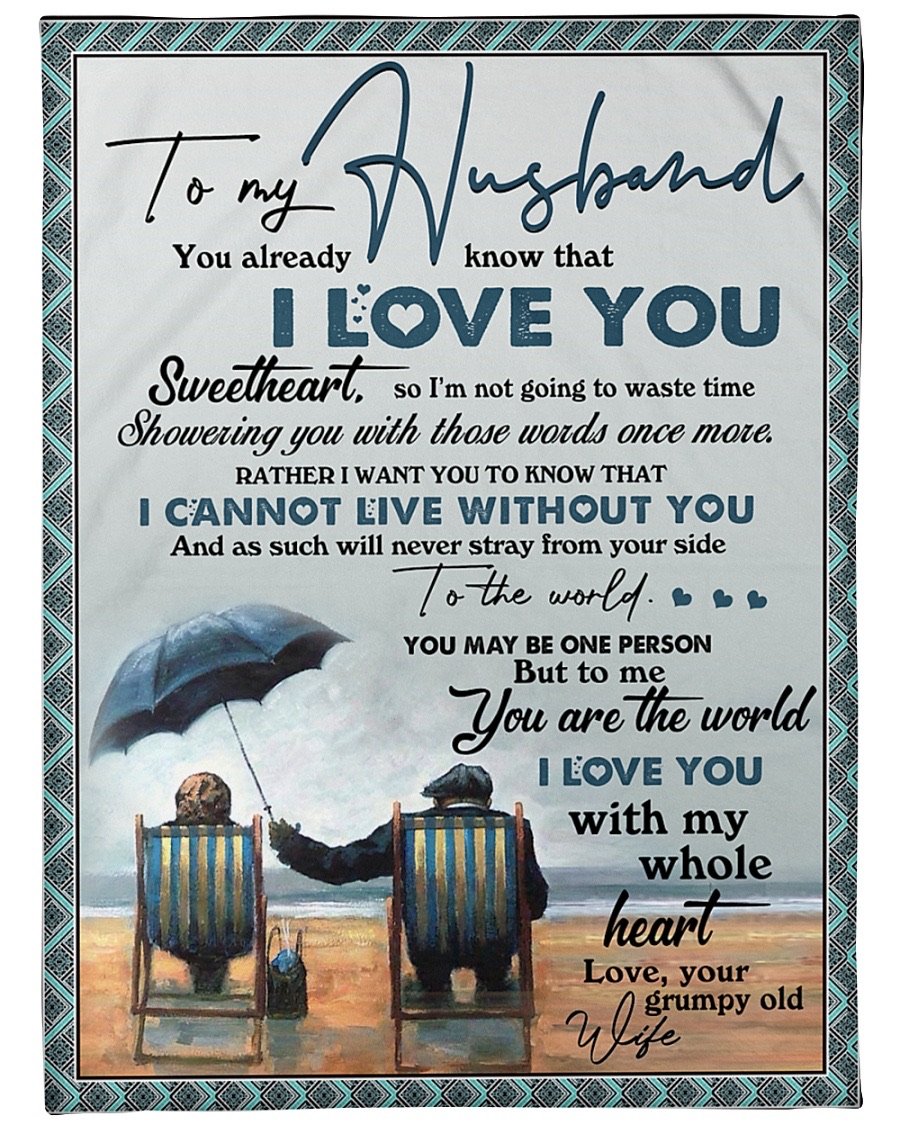 To my Husband
You already know that
I LOVE YOU
Sweetheart, so I'm not going to waste time
Showering you with those words once more.
RATHER I WANT YOU TO KNOW THAT
I CANNOT LIVE WITHOUT YOU
And as such will never stray from your side
To the world.
YOU MAY BE ONE PERSON
But to me
You are the world
I LOVE YOU
with my
whole
heart
Love, your
grumpy old
Wife